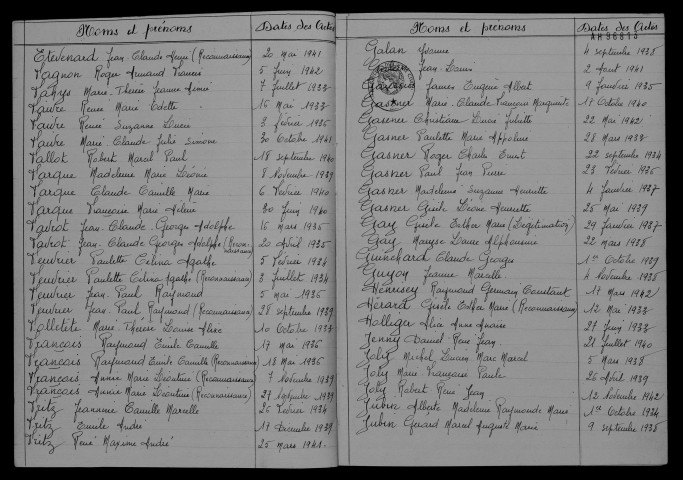 Noms et prénoms Dates des Actes
Etevenard Jean Claude (Reconnaissance) 20 mai 1941
Fagnon Roger Armand Francis 5 Juin 1942
Fahys Marie Thérèse Jeanne 7 Juillet 1933
Faivre René Marie Odette 15 Mai 1933
Faivre Renée Suzanne 3 février 1935
Faivre Marie Claude Julie Simone 30 Octobre 1941
Fallot Robert Marcel Paul 18 septembre 1940
Farque Madeleine Marie Léonie 8 Novembre 1939
Farque Claude Camille Marie 6 Février 1940
Farque Françoise Marie Hélène 30 Juin 1940
Favrot Jean-Claude Georges Adolphe 15 mars 1935
Favrot Jean-Claude Georges Adolphe (Reconnaissance) 20 Avril 1935
Feuvrier Paulette Célina Agathe 5 Février 1934
Feuvrier Paulette Célina Agathe (Reconnaissance) 3 Juillet 1934
Feuvrier Jean Paul Raymond 5 mai 1936
Feuvrier Jean Paul Raymond (Reconnaissance) 28 septembre 1939
Folletête Marie Thérèse Louise 10 Octobre 1933
François Raymond Emile Camille 17 mai 1936
François Raymond Emile Camille (Reconnaissance) 18 Mai 1936
François Annie Marie Léontine (Reconnaissance) 7 Novembre 1939
François Annie Marie Léontine (Reconnaissance) 27 Novembre 1939
Fritz Jeannine Camille Marcelle 26 Février 1934
Fritz Emile André 17 Décembre 1939
Fritz René Maxime André 25 mars 1941
Noms et prénoms Dates des Actes
Galan Yvonne 4 septembre 1935
Jean-Louis 2 Aout 1941
James Eugène Albert 9 1935
Gasner Marie-Claude Françoise Marguerite 17 Octobre 1940
Gasner Christiane Lucie Juliette 22 Mai 1942
Gasner Paulette Marie Appoline 28 Mars 1933
Gasner Roger Charles Ernest 22 septembre 1934
Gasner Paul Jean Pierre 23 Février 1935
Gasner Madeleine Suzanne Henriette 4 Janvier 1937
Gasner Gisèle Léone Henriette 25 Mai 1939
Gay Gisèle Esther Marie (Légitimation) 29 Janvier 1937
Gay Maryse Louise Alphonsine 22 mars 1938
Guinchard Claude Georges 1er Octobre 1939
Guyon Jeanne Marcelle 4 Novembre 1935
Henrisey Raymond Germain Constant 17 Mars 1942
Hérard Gisèle Esther Marie (Reconnaissance) 12 Mai 1933
Holliger Alice Anne 27 Juin 1933
Jenny Daniel René Jean 21 Juillet 1940
Joly Michel Lucien Marc Marcel 5 Mars 1938
Joly Marie Françoise Paule 26 Avril 1939
Joly Robert René Jean 12 Novembre 1942
Jubin Alberte Madeleine Raymonde Marie 1er Octobre 1934
Jubin Gérard Marcel Auguste Marie 9 septembre 1935